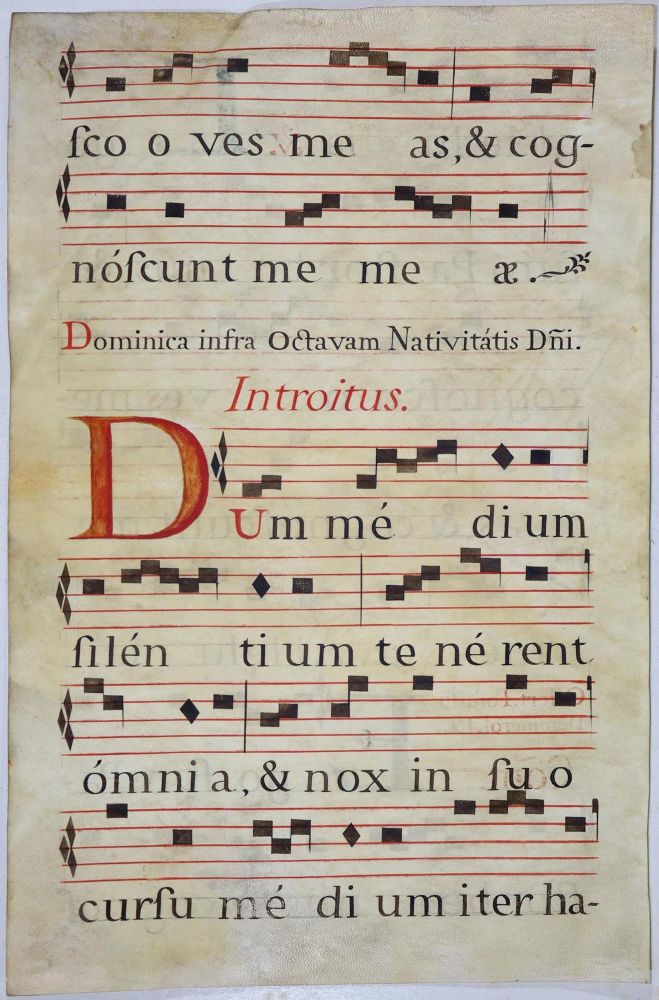 ſco o ves me as, & cog-
nóſcunt me me æ.
Dominica infra Octavam Nativitátis Dñi.
Introitus.
DUm mé di um
ſilén ti um te né rent
ómni a, & nox in ſu o
curſu mé di um iter ha-